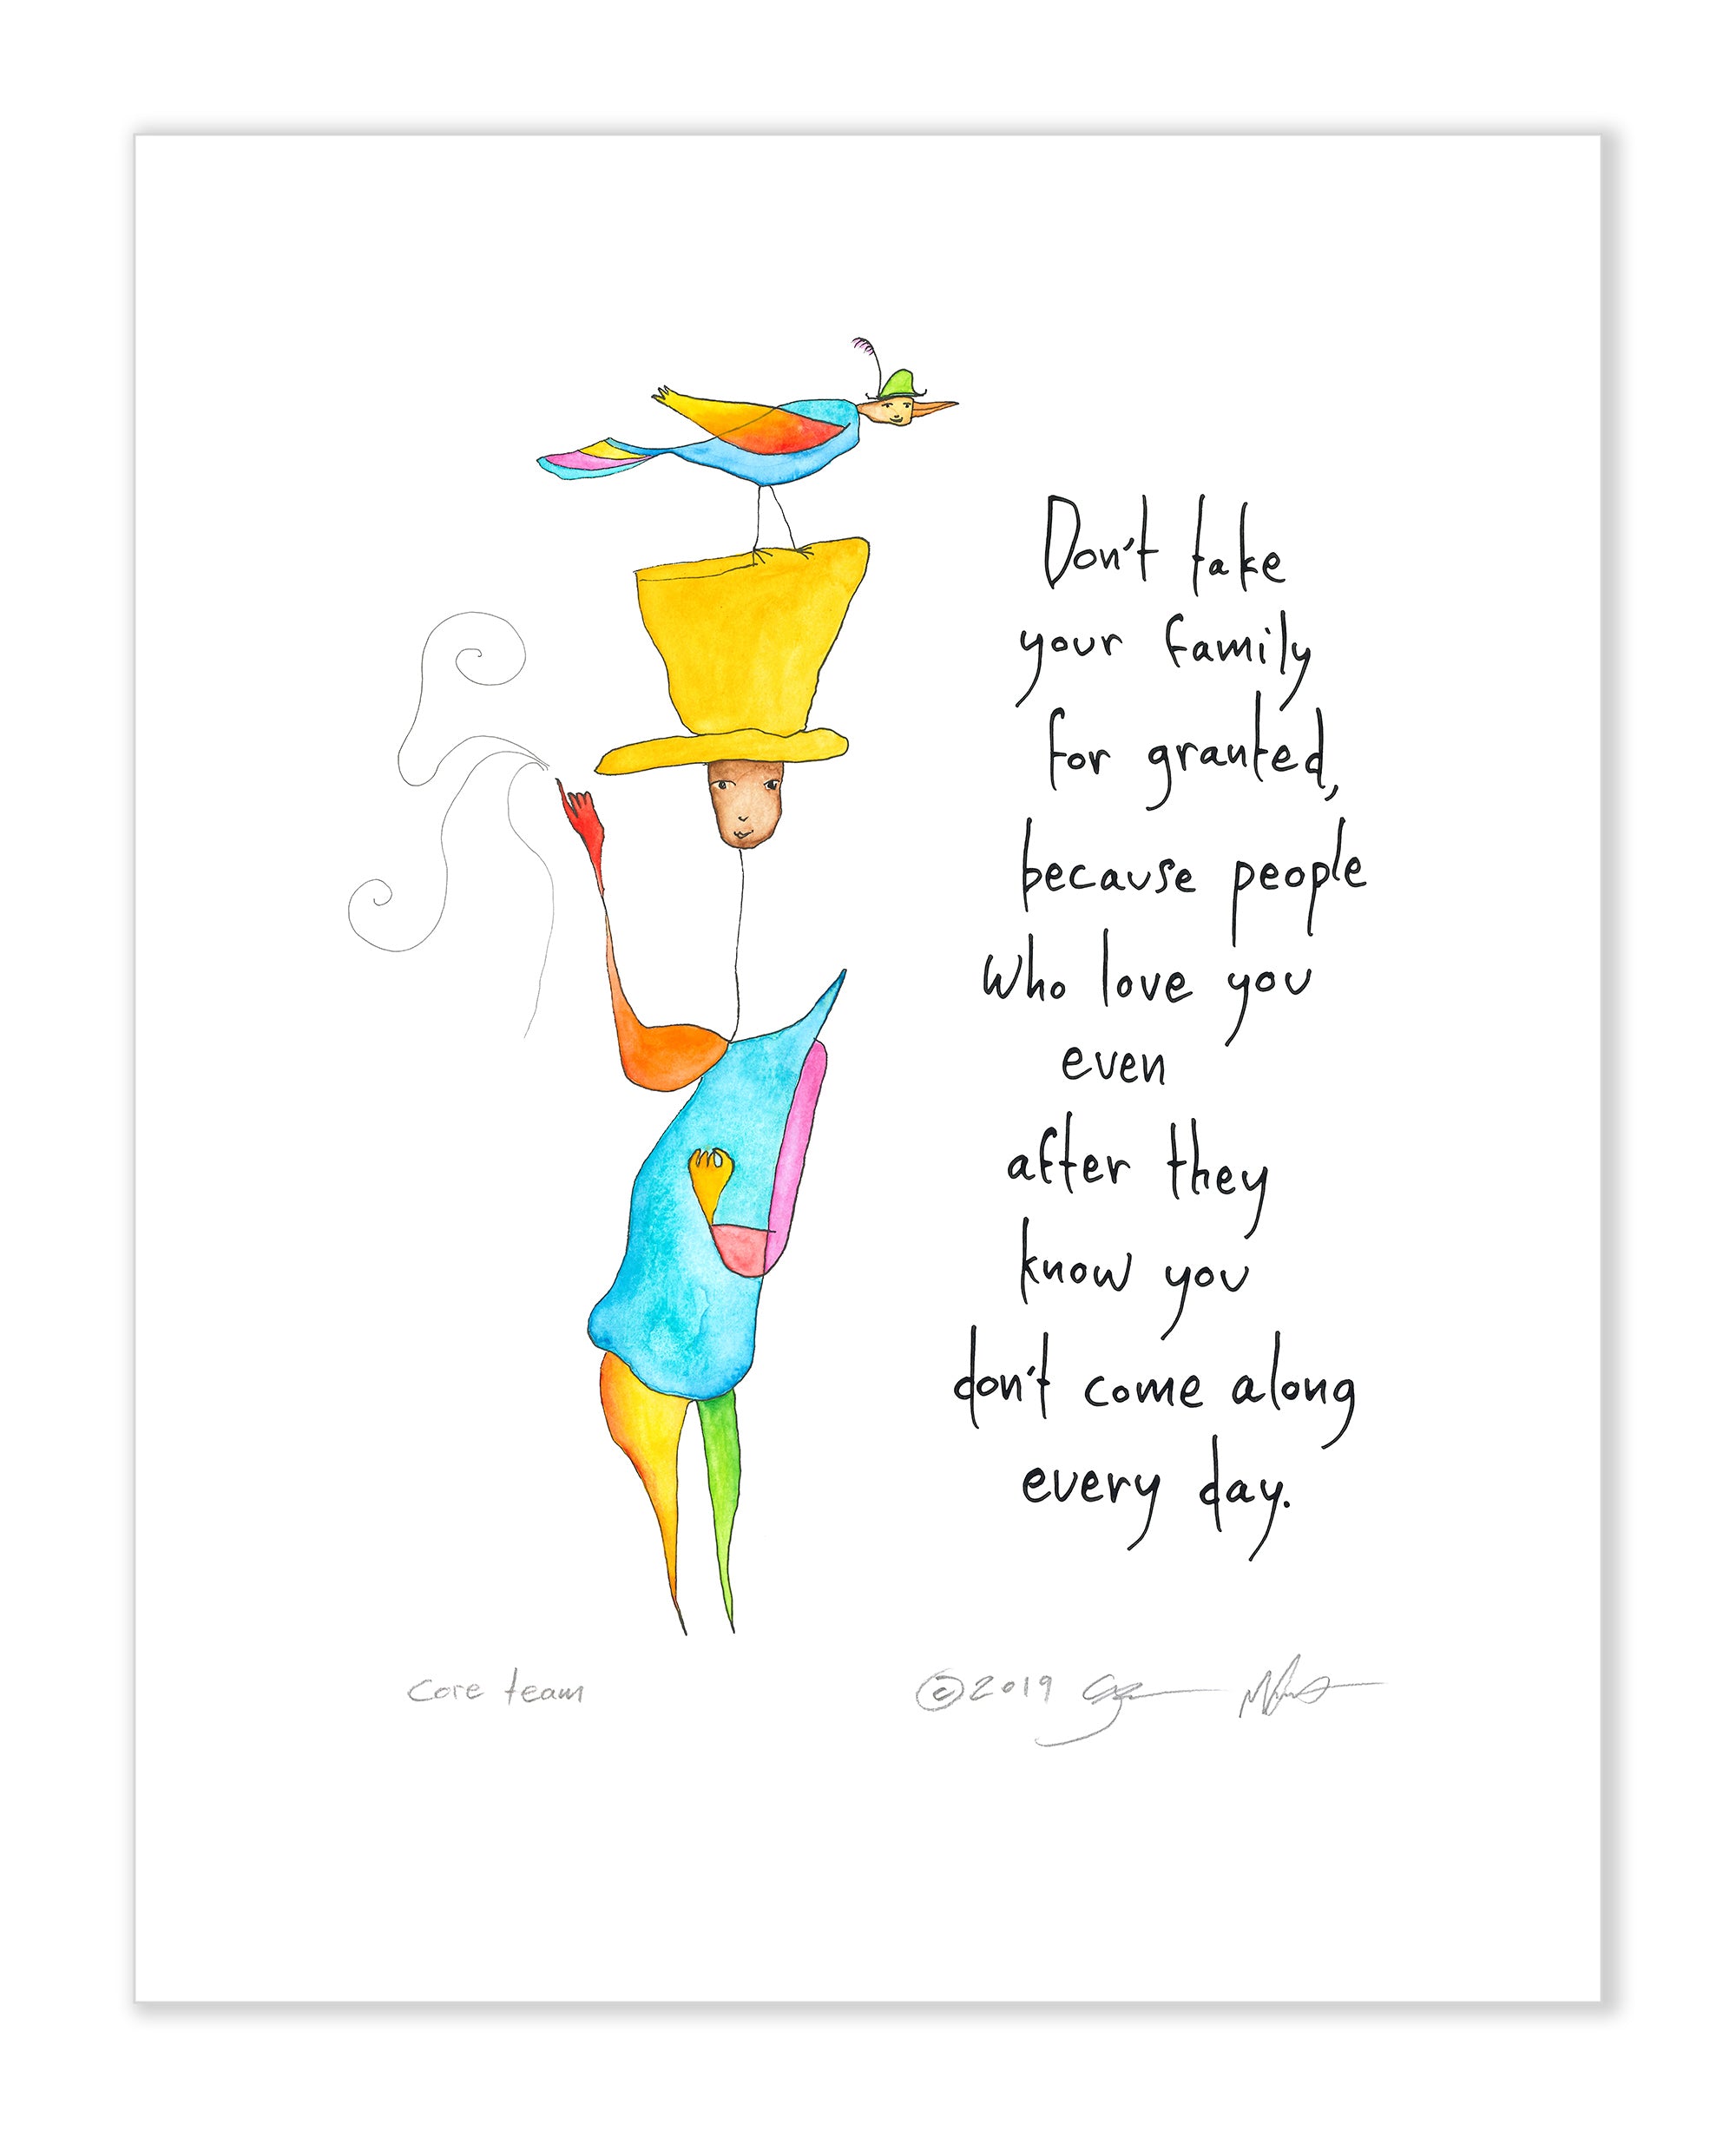 Don't take
your family
for granted,
because people
who love you
even
after they
know you
don't come along
every day.
core team
©2019